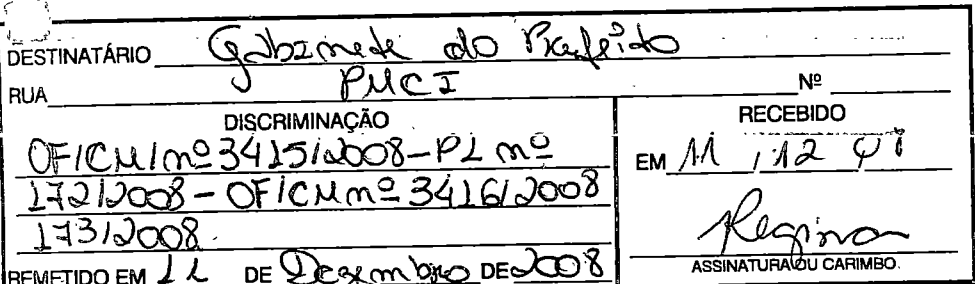 DESTINATÁRIO Gabinete do Prefeito
RUA PMCI Nº
DISCRIMINAÇÃO
OF/CM/nº 3415/2008-PL nº
172/2008 - OF/CM nº 3416/2008
173/2008.
REMETIDO EM 11 DE Dezembro DE 2008
RECEBIDO
EM 11 / 12
Regina
ASSINATURA OU CARIMBO.